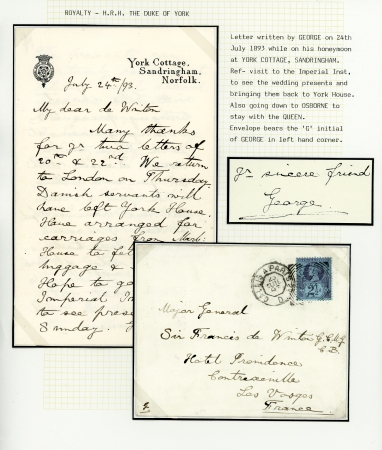 ROYALTY - H.R.H. THE DUKE OF YORK
Letter written by GEORGE on 24th
July 1893 while on his honeymoon
at YORK COTTAGE, SANDRINGHAM.
Ref- visit to the Imperial Inst.
to see the wedding presents and
bringing them back to York House.
Also going down to OSBORNE to
stay with the QUEEN.
Envelope bears the 'G' initial
of GEORGE in left hand corner.
York Cottage,
Sandringham,
Norfolk.
July 24th/93.
My dear de Winton
Many thanks
for yr two letters of
20th & 22nd. We return
to London on Thursday
Danish servants will
have left York House.
Have arranged for
carriages from Marl:
House to
luggage &
Hope to go
Imperial In
to see pres
Sunday.
yr sincere friend
George
Major General
Sir Francis de Winton G.C.M.G.
C.B.
Hotel Providence
Contrexeville
Les Vosges
France